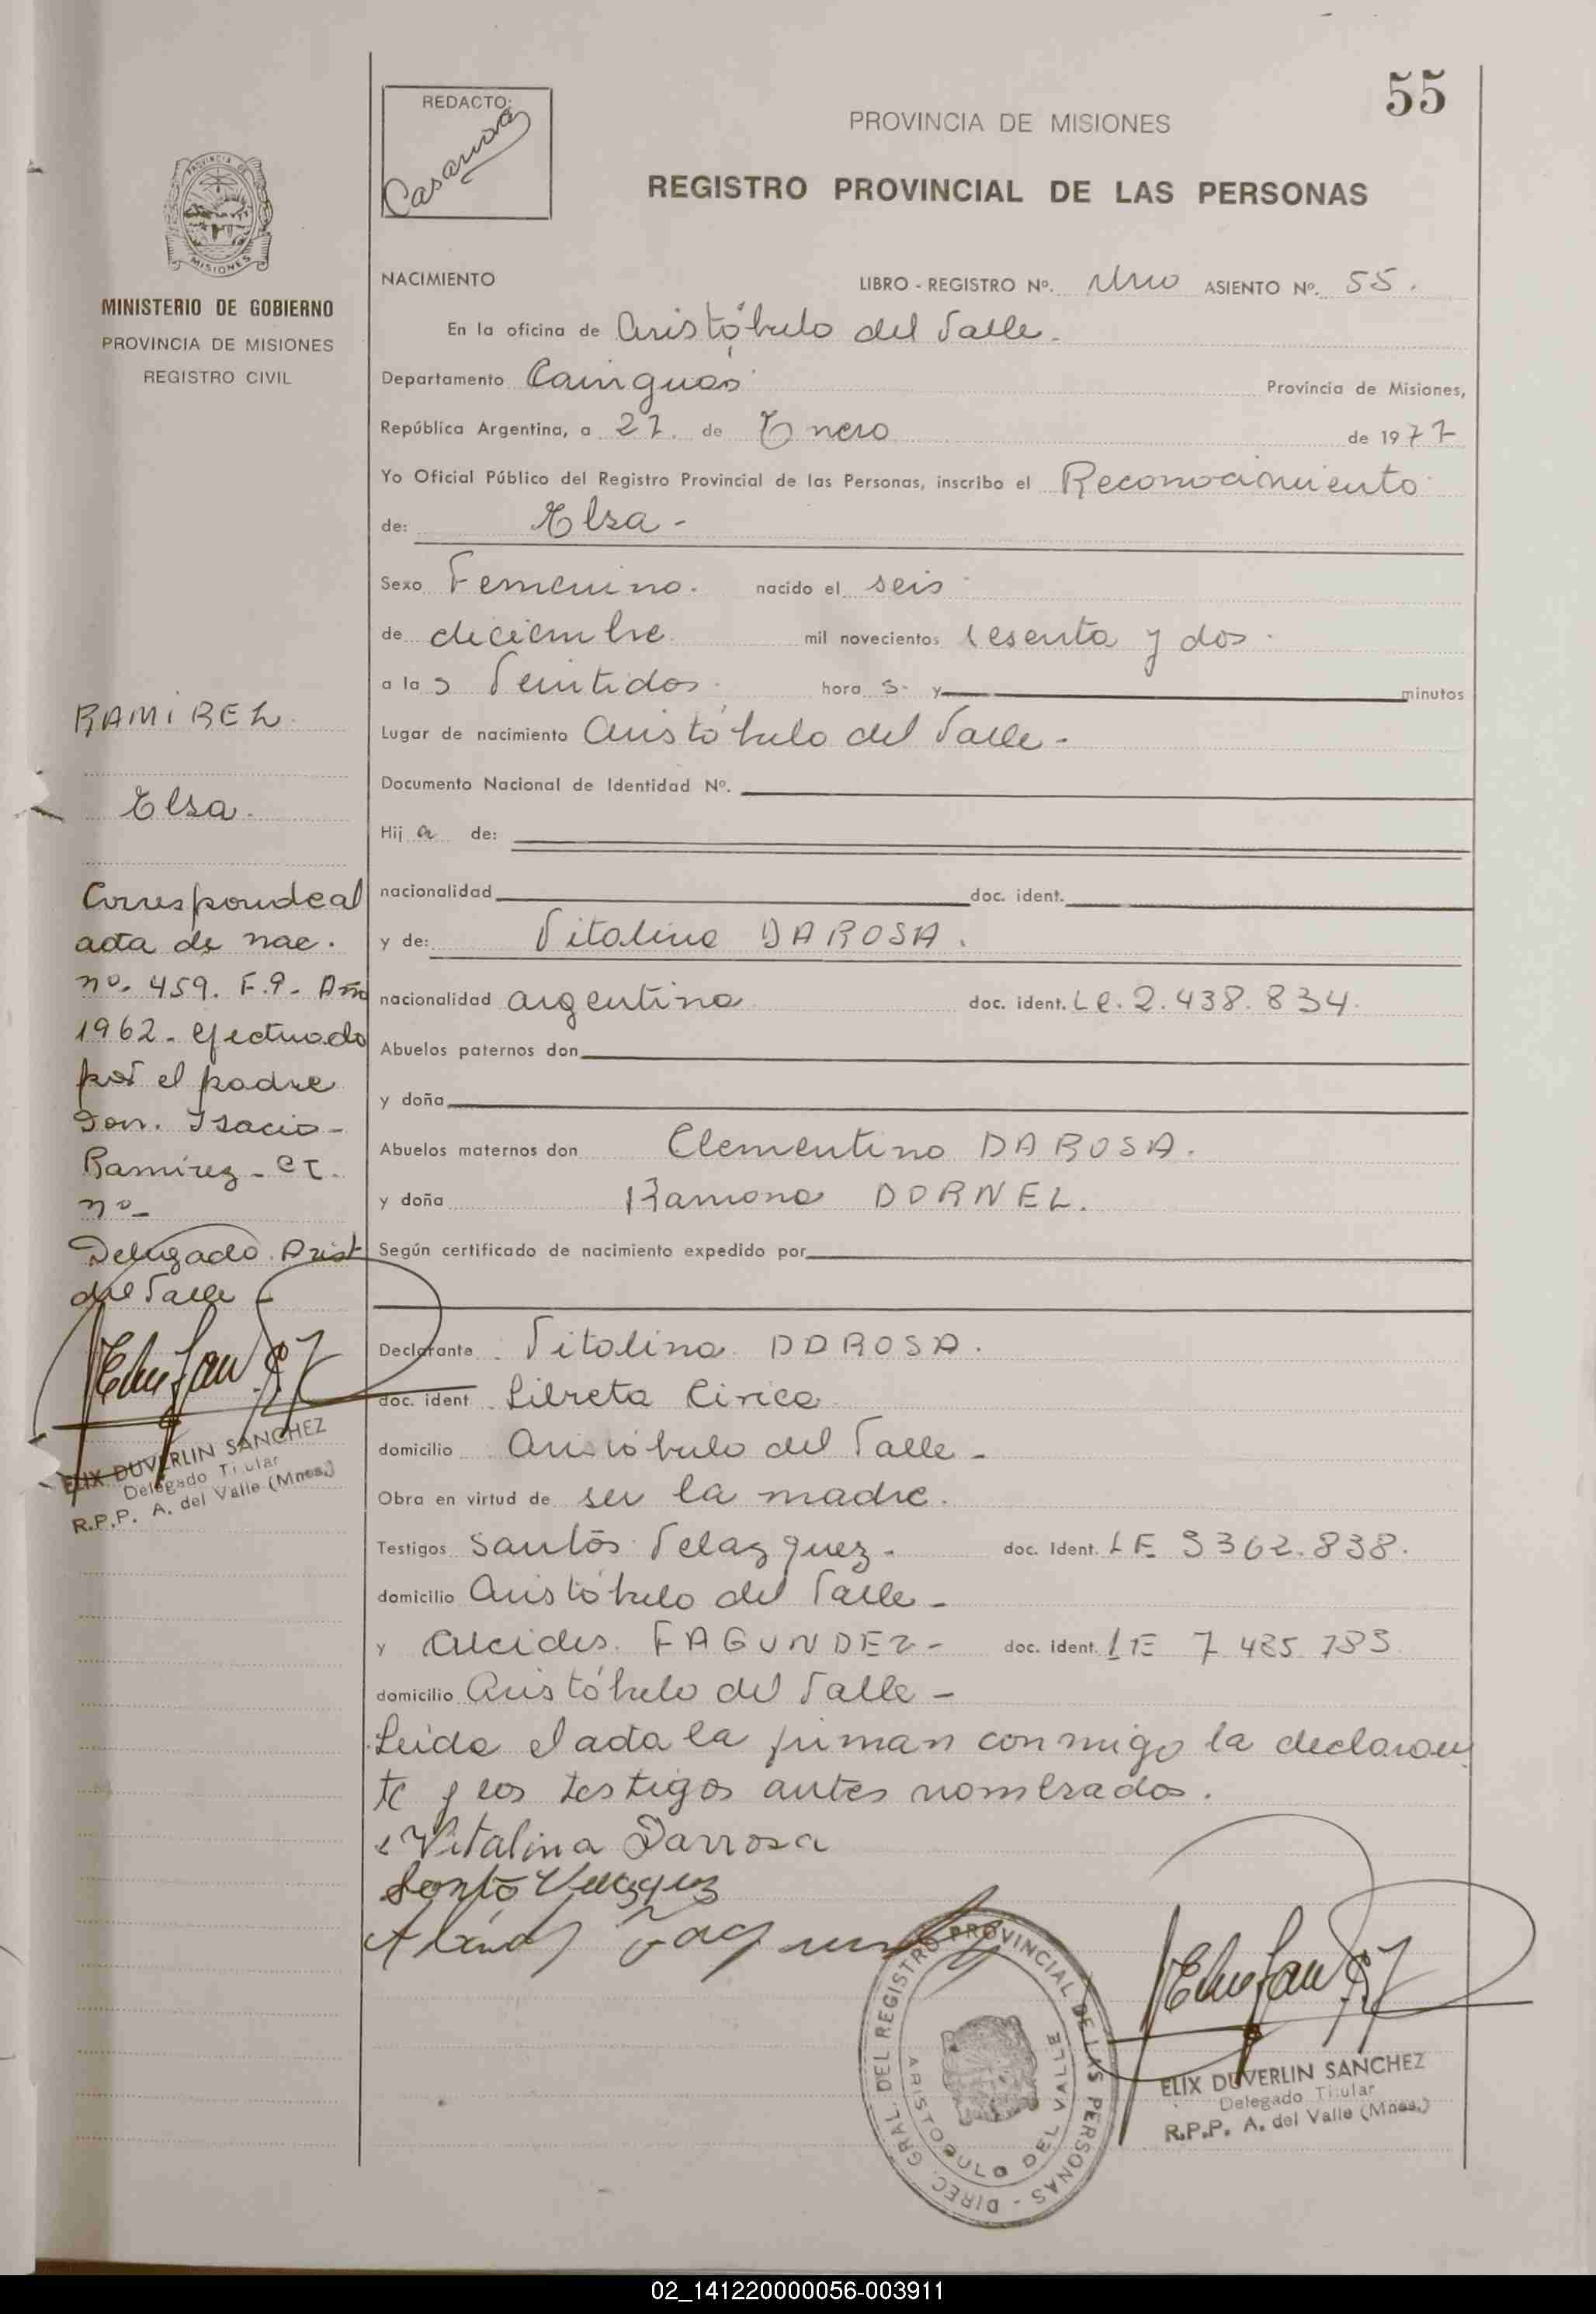 55
REDACTO:
Casanova
PROVINCIA DE MISIONES
REGISTRO PROVINCIAL DE LAS PERSONAS
PROVINCIA DE
MISIONES
MINISTERIO DE GOBIERNO
PROVINCIA DE MISIONES
REGISTRO CIVIL
NACIMIENTO LIBRO - REGISTRO Nº. Uno ASIENTO Nº. 55.
En la oficina de Aristóbulo del Valle.
Departamento Cainguás Provincia de Misiones,
República Argentina, a 27. de Enero de 1977
Yo Oficial Público del Registro Provincial de las Personas, inscribo el Reconocimiento
de: Elsa -
Sexo Femenino. nacido el seis
de diciembre mil novecientos sesenta y dos.
a las Veintidos hora s. y minutos
Lugar de nacimiento Aristóbulo del Valle -
Documento Nacional de Identidad Nº.
Hij a de:
nacionalidad doc. ident.
y de: Vitalina DAROSA.
nacionalidad argentina doc. ident. Lc. 2.438.834.
Abuelos paternos don
y doña
Abuelos maternos don Clementino DAROSA.
y doña Ramona DORNEL.
Según certificado de nacimiento expedido por
Declarante Vitalina DAROSA.
doc. ident Libreta Civica
domicilio Aristóbulo del Valle -
Obra en virtud de ser la madre.
Testigos Santos Velazquez - doc. Ident. LE 3362.838.
domicilio Aristóbulo del Valle -
y Alcides. FAGUNDEZ - doc. ident. LE 7 485 783
domicilio Aristóbulo del Valle -
Leida el acta la firman conmigo la declaran
te y los testigos antes nombrados.
Vitalina Darrosa
Santo Velazquez
RAMIREZ.
Elsa.
Corresponde al
acta de nac.
nº. 459. F.9. Año
1962 - efectuado
por el padre
Don. Isacio -
Ramirez - CI.
nº -
Delegado. Arist
del Valle -
ELIX DUVERLIN SANCHEZ
Delegado Titular
R.P.P. A. del Valle (Mnes.)
DIREC. GRAL. DEL REGISTRO PROVINCIAL DE LAS PERSONAS -
ARISTOBULO DEL VALLE
ELIX DUVERLIN SANCHEZ
Delegado Titular
R.P.P. A. del Valle (Mnes.)
02_141220000056-003911